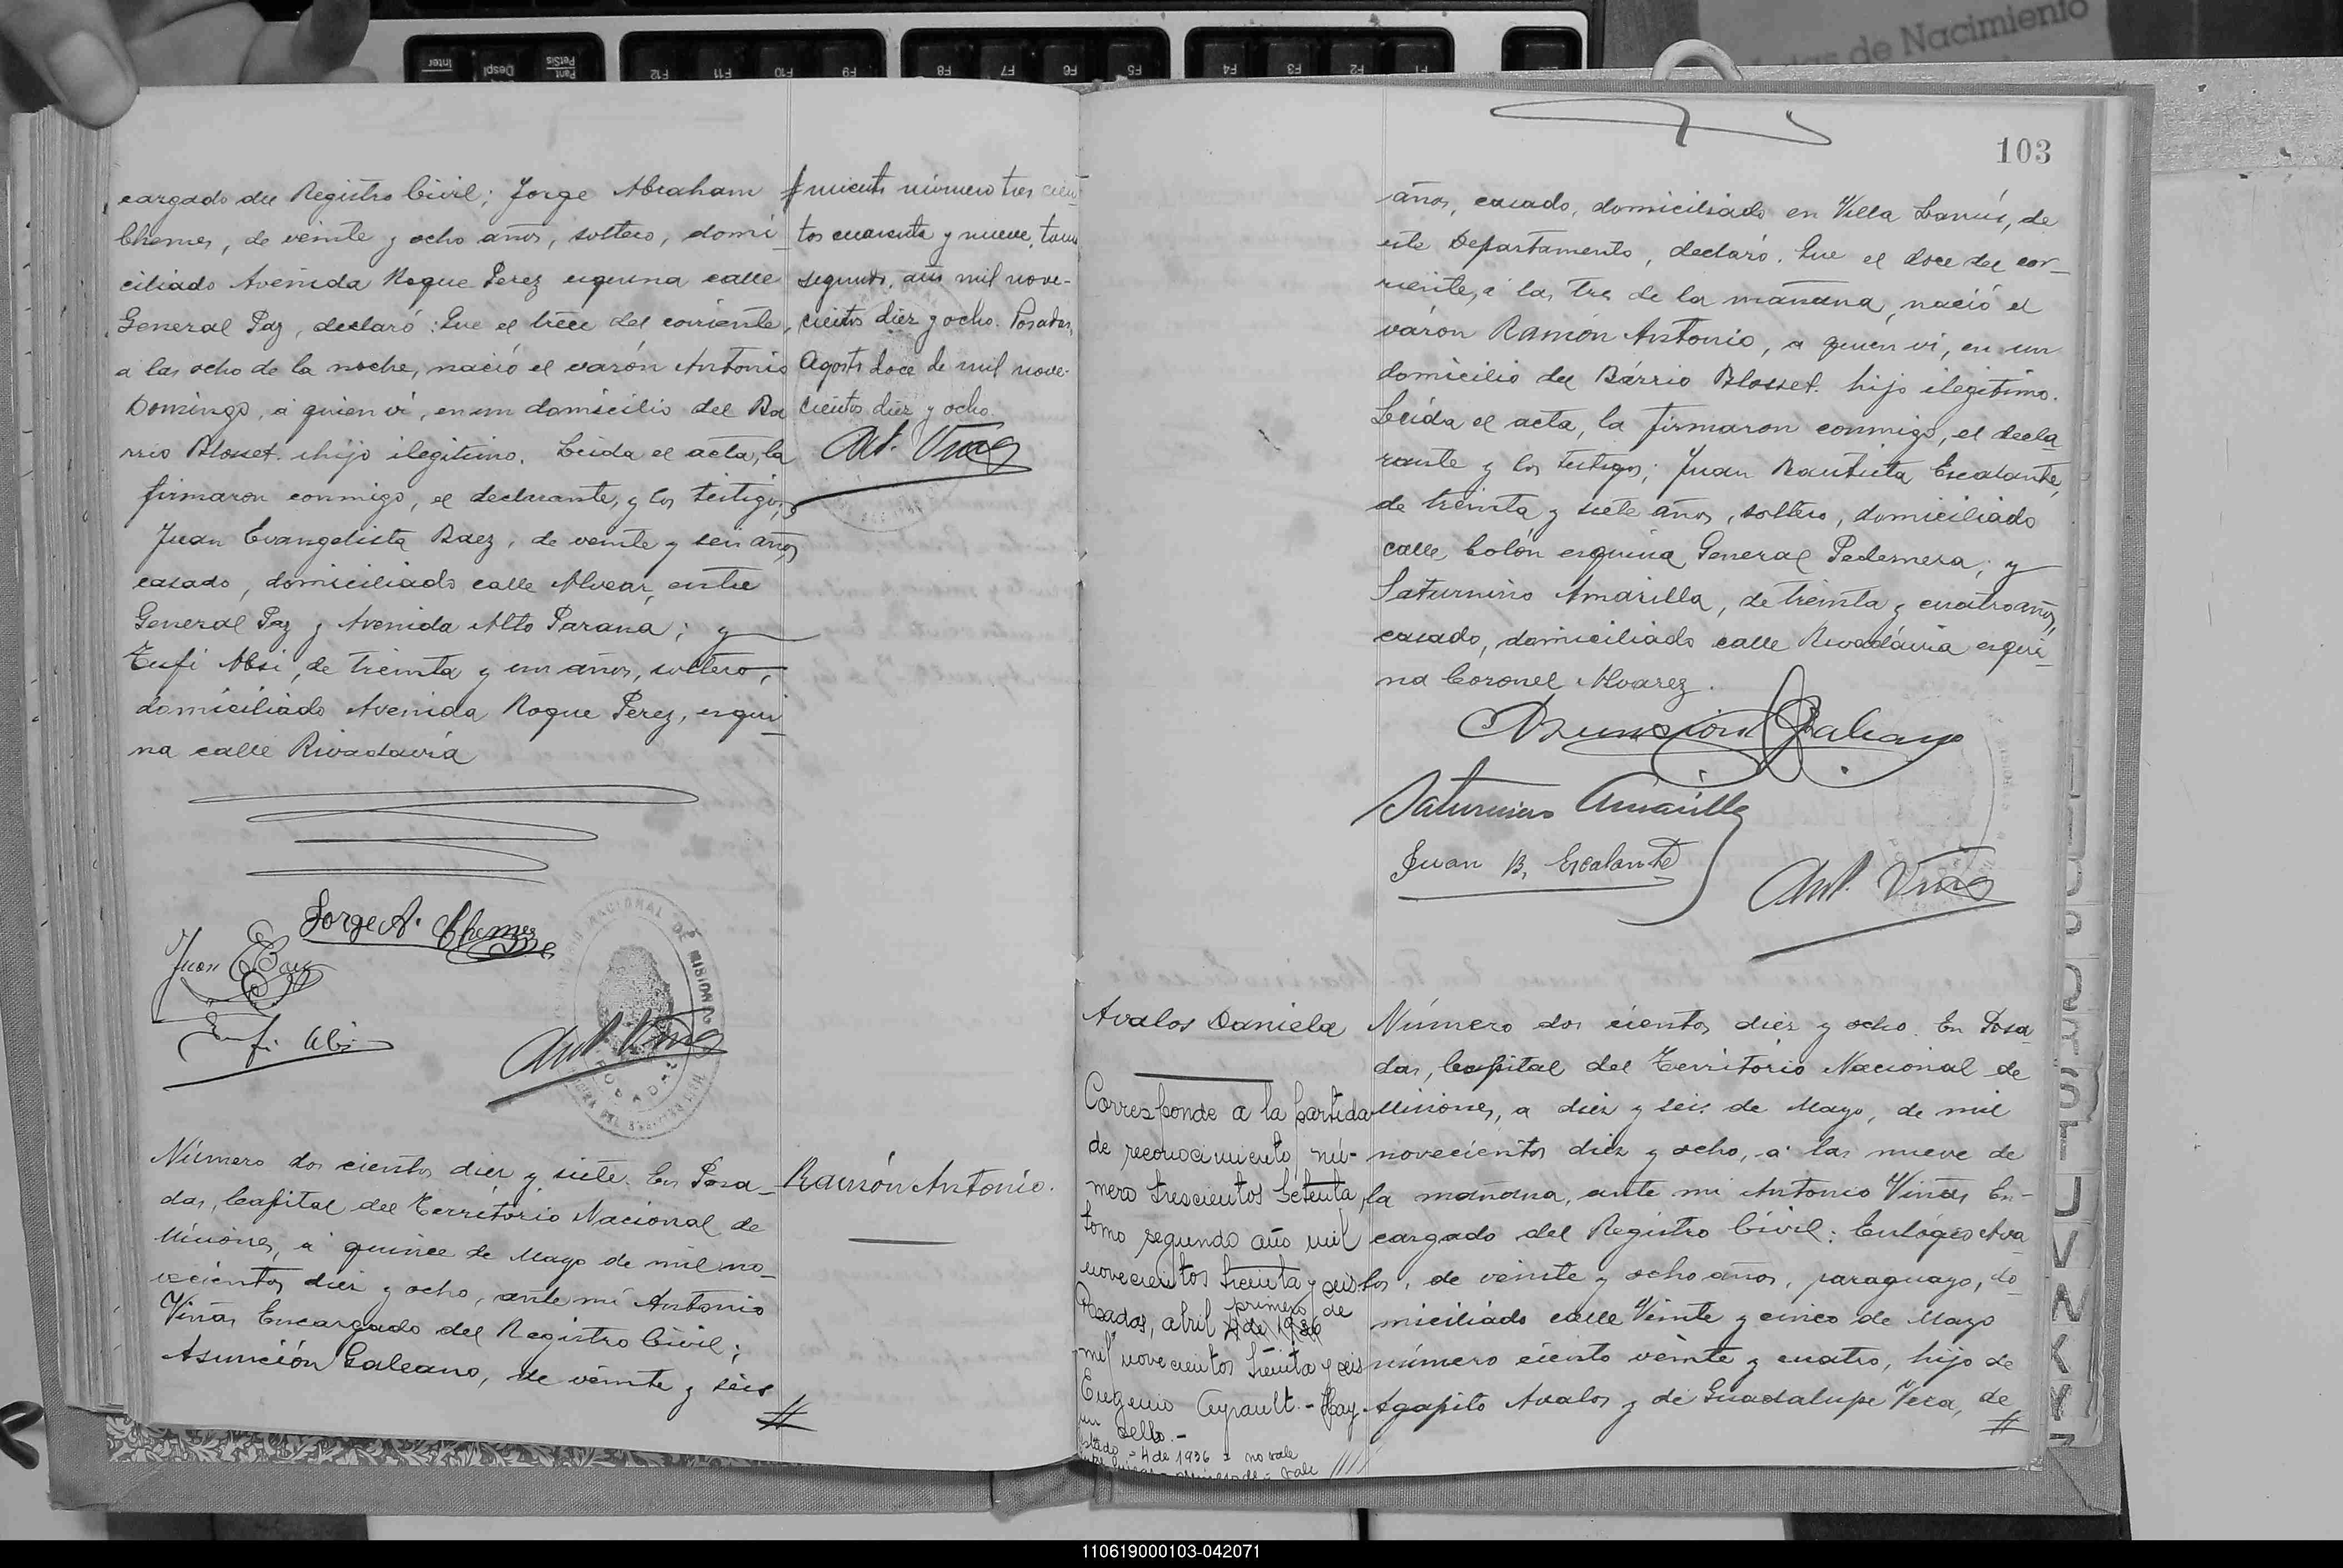 cargado del Registro Civil; Jorge Abraham
Chemes, de veinte y ocho años, soltero, domi
ciliado Avenida Roque Perez esquina calle
General Paz, declaró: Que el trece del corriente,
a las ocho de la noche, nació el varón Antonio
Domingo, a quien vi, en un domicilio del Ba
rrio Blosset. hijo ilegitimo. Leida el acta, la
firmaron conmigo, el declarante, y los testigos;
Juan Evangelista Baez, de veinte y seis años
casado, domiciliado calle Alvear, entre
General Paz y Avenida Alto Parana; y
Tufi Absi, de treinta y un años, soltero,
domiciliado Avenida Roque Perez, esqui
na calle Rivadavia
Jorge A. Chemes
Juan E Baez
Tufi Absi
Ant. Viñas
Número dos cientos diez y siete. En Posa-
das, Capital del Territorio Nacional de
Misiones, a quince de Mayo de mil no-
vecientos diez y ocho, ante mi Antonio
Viñas Encargado del Registro Civil;
Asunción Galeano, de veinte y seis
miento número tres cien-
tos cuarenta y nueve, tomo
segundo, año mil nove-
cientos diez y ocho. Posadas,
Agosto doce de mil nove-
cientos diez y ocho.
Ant. Viñas
Ramón Antonio.
103
años, casado, domiciliado en Villa Lanús, de
este Departamento, declaró. Que el doce del cor-
riente, a las tres de la mañana, nació el
varón Ramón Antonio, a quien vi, en un
domicilio del Bárrio Blosset. hijo ilegitimo.
Leida el acta, la firmaron conmigo, el decla
rante y los testigos; Juan Bautista Escalante,
de treinta y siete años, soltero, domiciliado
calle Colón esquina General Pedernera; y
Saturnino Amarilla, de treinta y cuatro años,
casado, domiciliado calle Rivadavia esqui-
na Coronel Alvarez.
Asuncion Galeano
Saturnino Amarilla
Juan B. Escalante
Ant. Viñas
Avalos Daniela
Corresponde a la partida
de reconocimiento nú-
mero trescientos setenta,
tomo segundo año mil
novecientos treinta y seis.
Posadas, abril 4 de 1936
primero de
mil novecientos treinta y seis
Eugenio Ayrault.- Hay
un sello.-
4 de 1936 = no vale
vale
Número dos cientos diez y ocho. En Posa-
das, Capital del Territorio Nacional de
Misiones, a diez y seis de Mayo, de mil
novecientos diez y ocho, a las nueve de
la mañana, ante mi Antonio Viñas En-
cargado del Registro Civil: Eulógio Ava
los, de veinte y ocho años, paraguayo, do
miciliado calle Veinte y cinco de Mayo
número ciento veinte y cuatro, hijo de
Agapito Avalos y de Guadalupe Vera, de
110619000103-042071